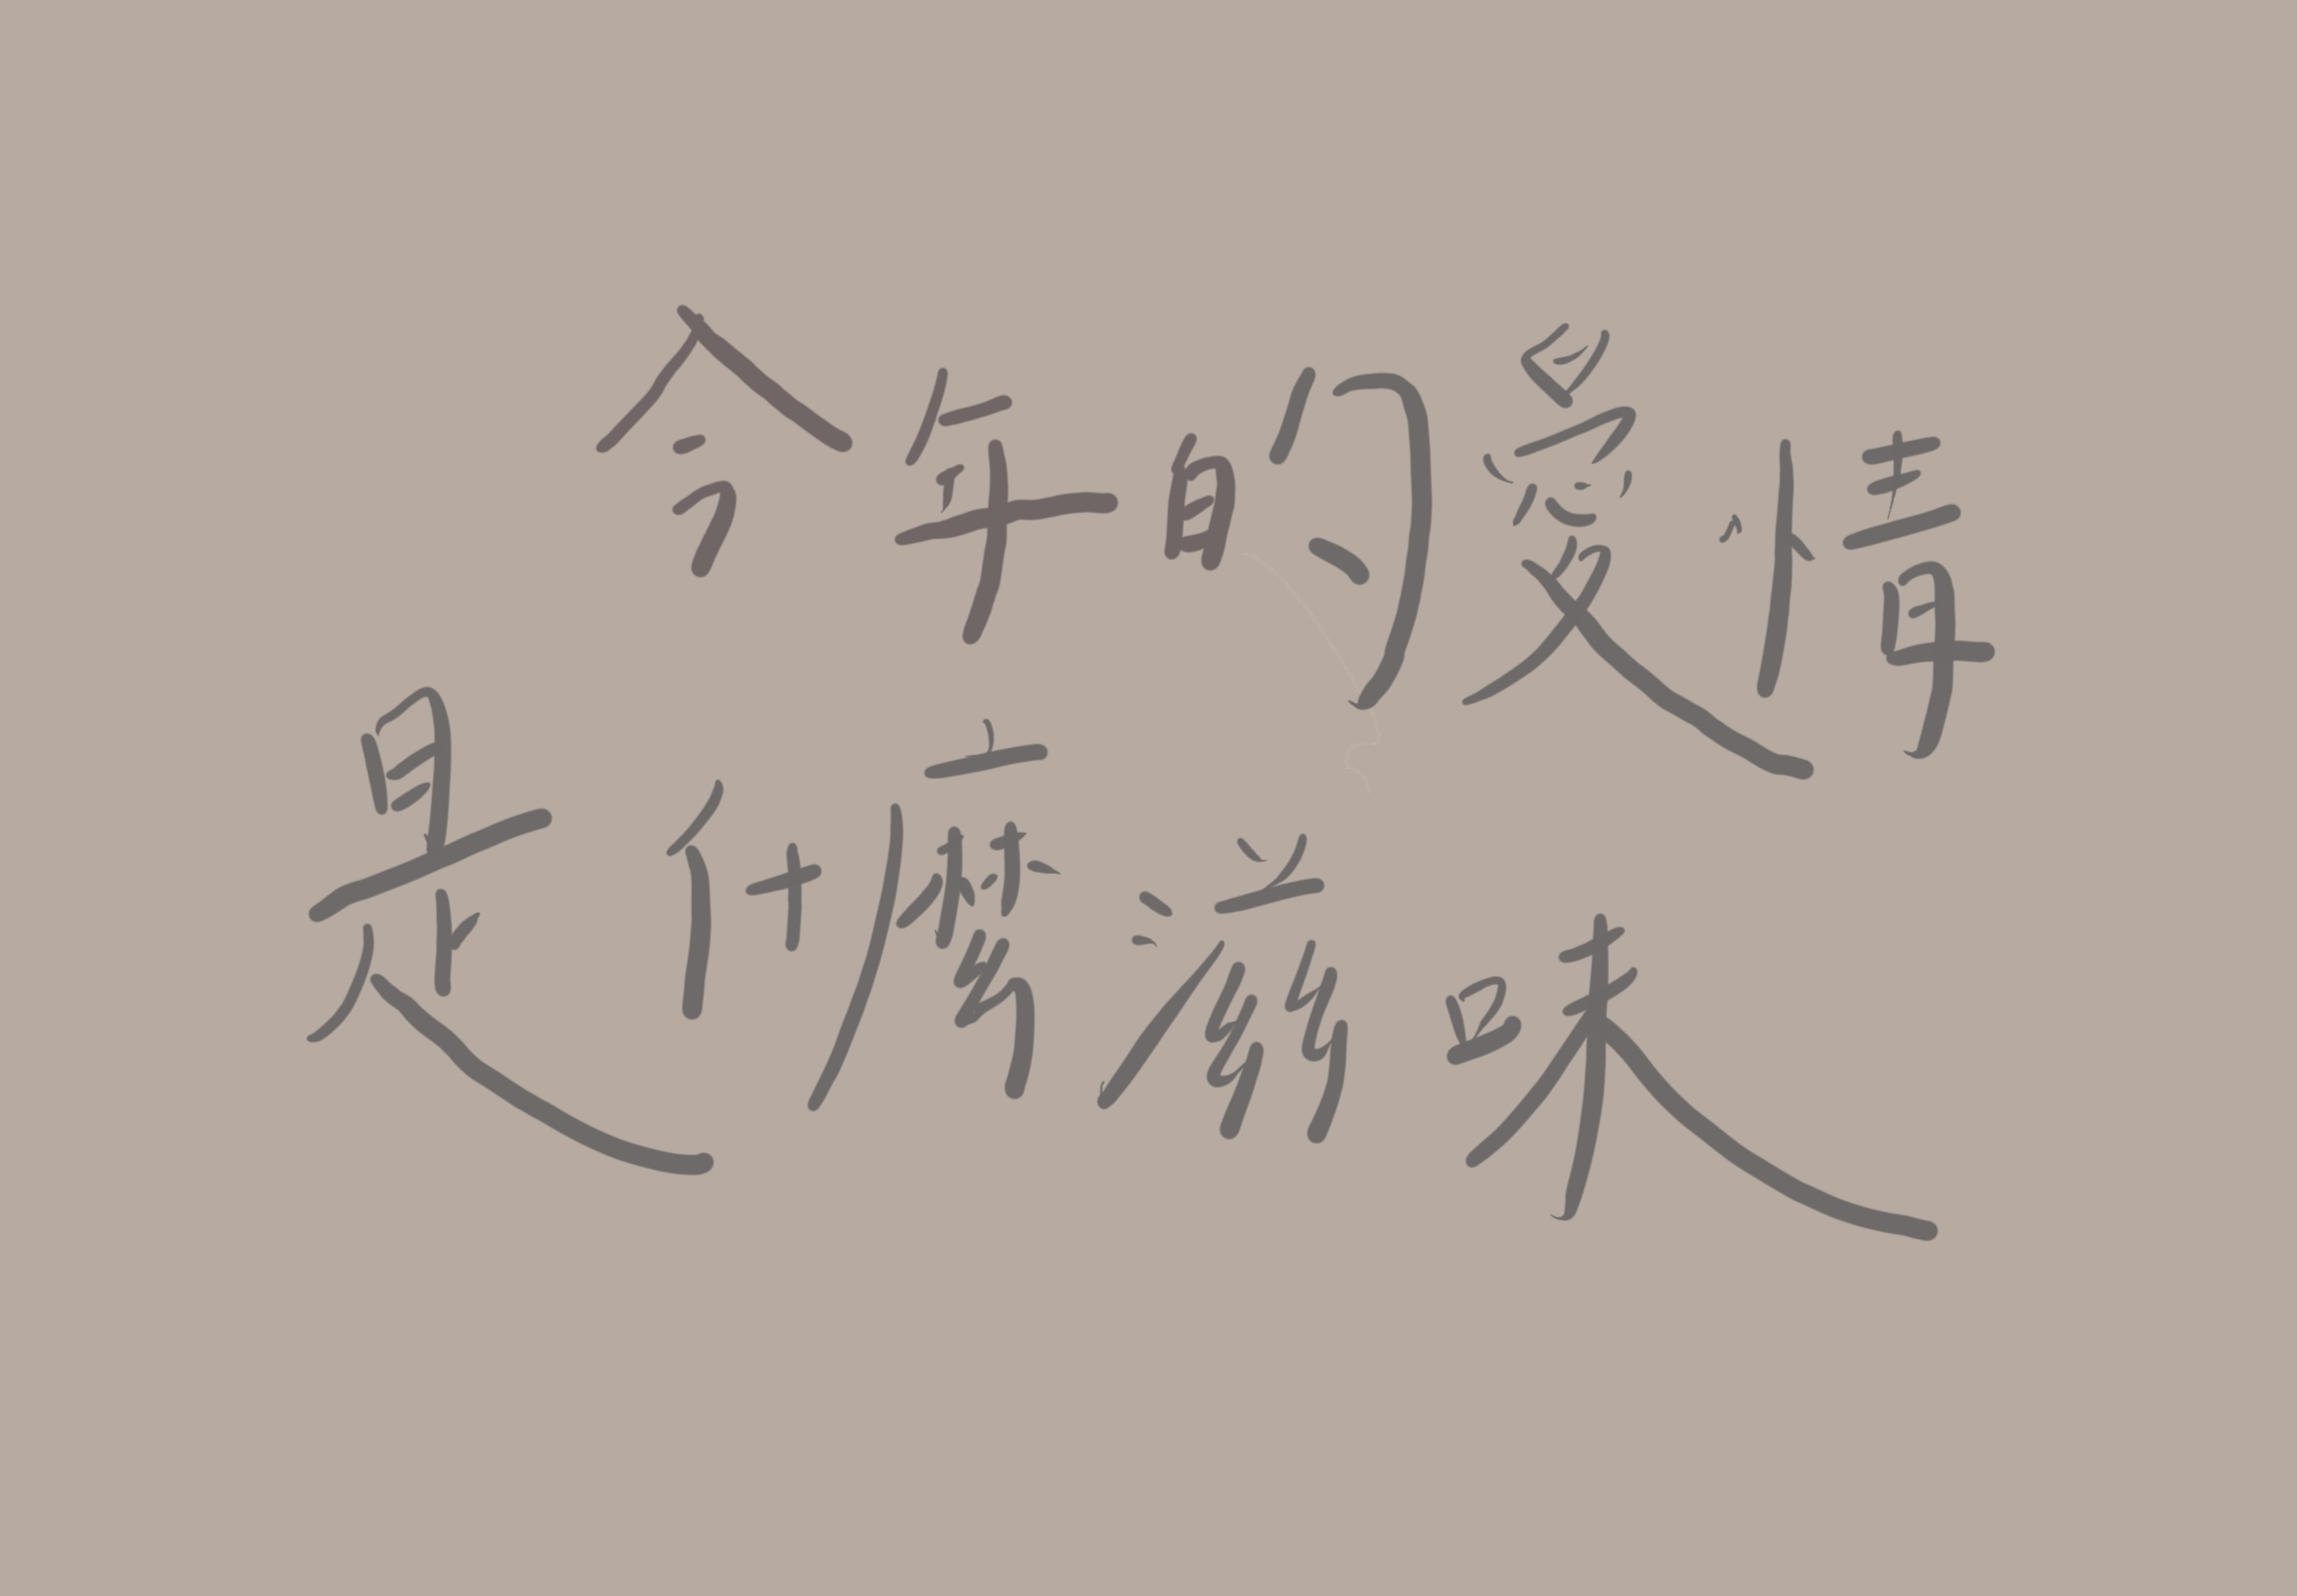 今年的愛情
是什麼滋味